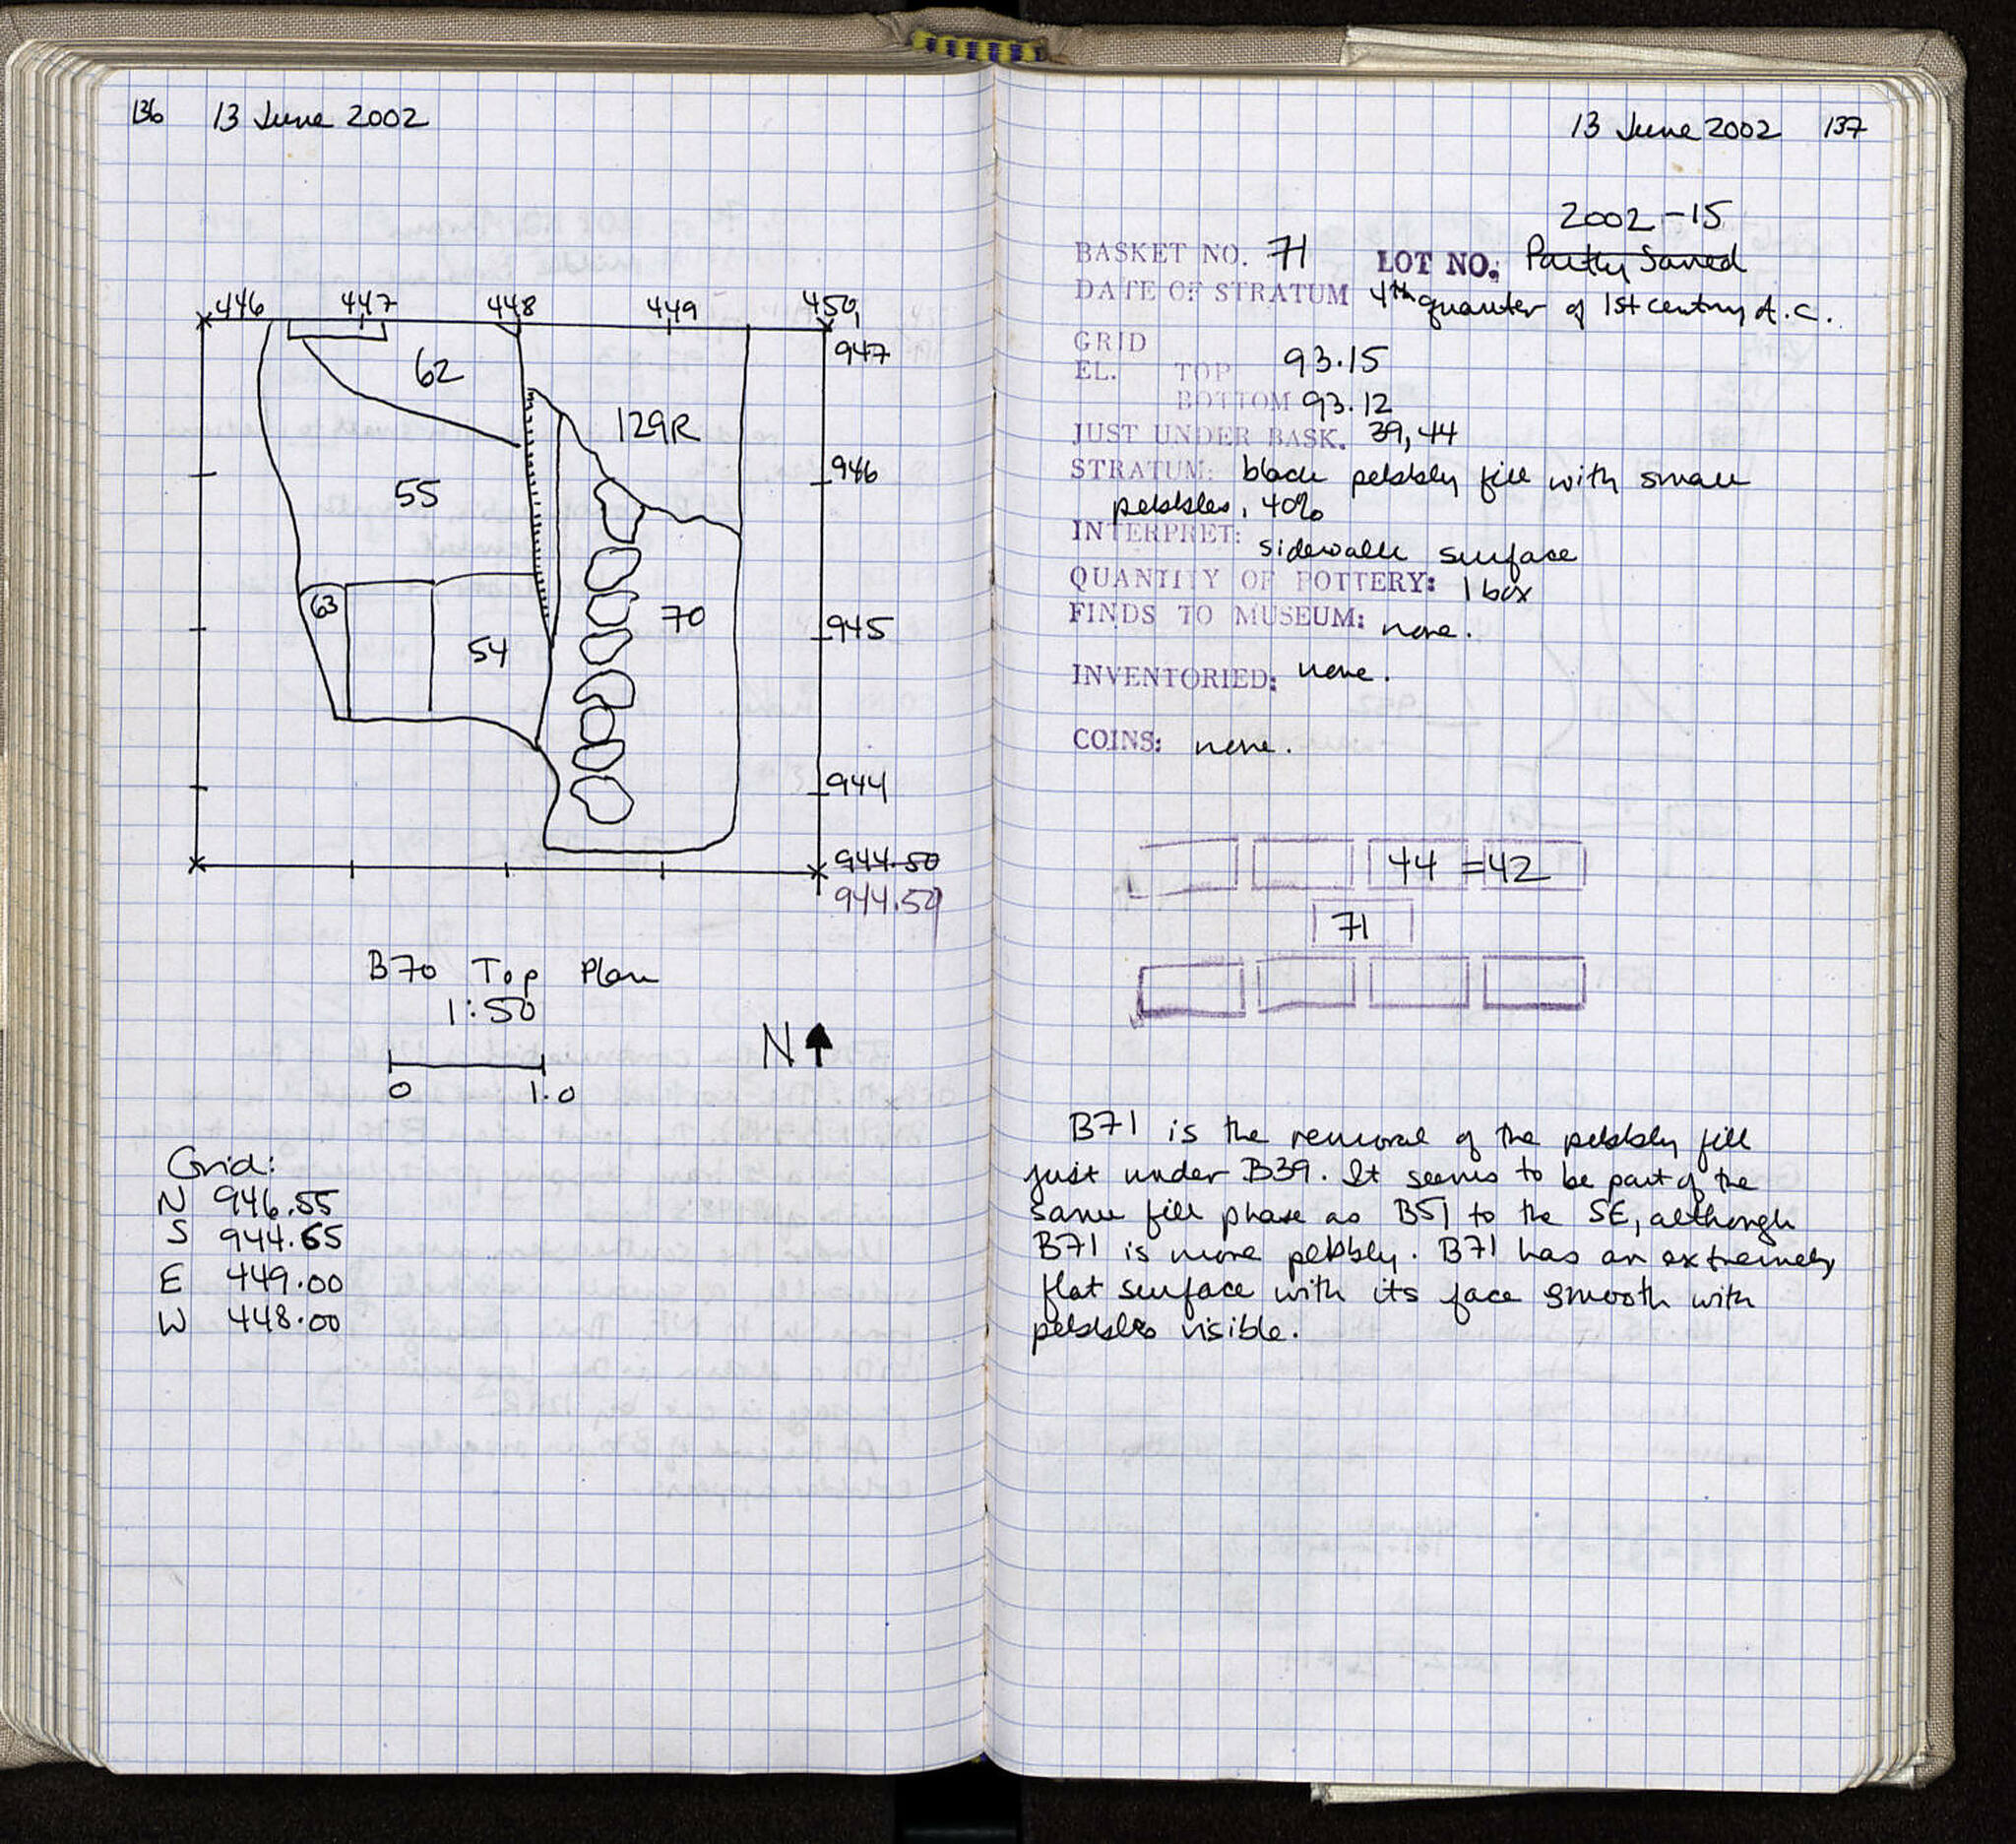 136 13 June 2002
446 447 448 449 450
947
62
129R
946
55
63
70
945
54
944
944.50
944.50
B70 Top Plan
1:50
N
0 1.0
Grid:
N 946.55
S 944.65
E 449.00
W 448.00
13 June 2002 137
2002-15
BASKET NO. 71 LOT NO. Partly Saved
DATE OF STRATUM 4th quarter of 1st century A.C.
GRID
EL. TOP 93.15
BOTTOM 93.12
JUST UNDER BASK. 39, 44
STRATUM: black pebbly fill with small
pebbles, 40%
INTERPRET: sidewalk surface
QUANTITY OF POTTERY: 1 box
FINDS TO MUSEUM: none.
INVENTORIED: none.
COINS: none.
44 = 42
71
B71 is the removal of the pebbly fill
just under B39. It seems to be part of the
same fill phase as B51 to the SE, although
B71 is more pebbly. B71 has an extremely
flat surface with its face smooth with
pebbles visible.